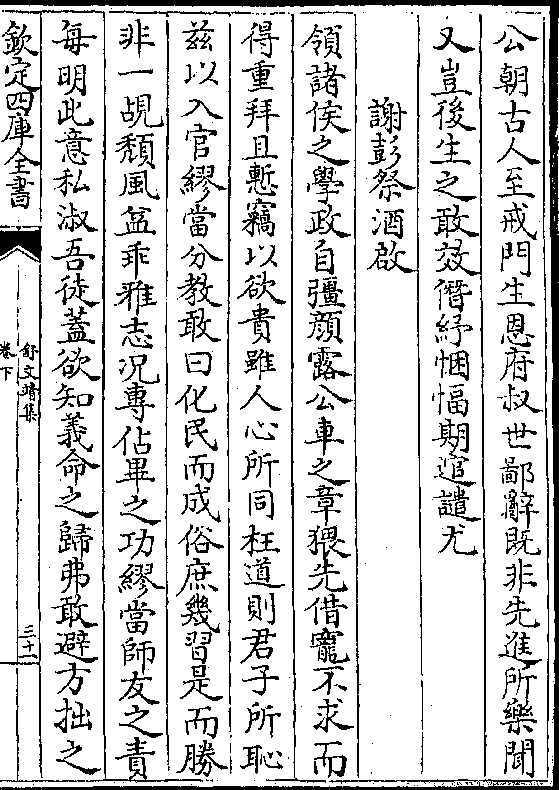 公朝古人至戒門生恩府叔世鄙辭既非先進所樂聞
又豈後生之敢效僭紓悃愊期逭譴尤
謝彭祭酒啟
領諸侯之學政自彊顔露公車之章猥先借寵不求而
得重拜且慙竊以欲貴雖人心所同枉道則君子所恥
兹以入官繆當分教敢曰化民而成俗庶幾習是而勝
非一覘頽風益乖雅志況專佔畢之功繆當師友之責
每明此意私淑吾徒蓋欲知義命之歸弗敢避方拙之
欽定四庫全書
舒文靖集
卷下
三十一